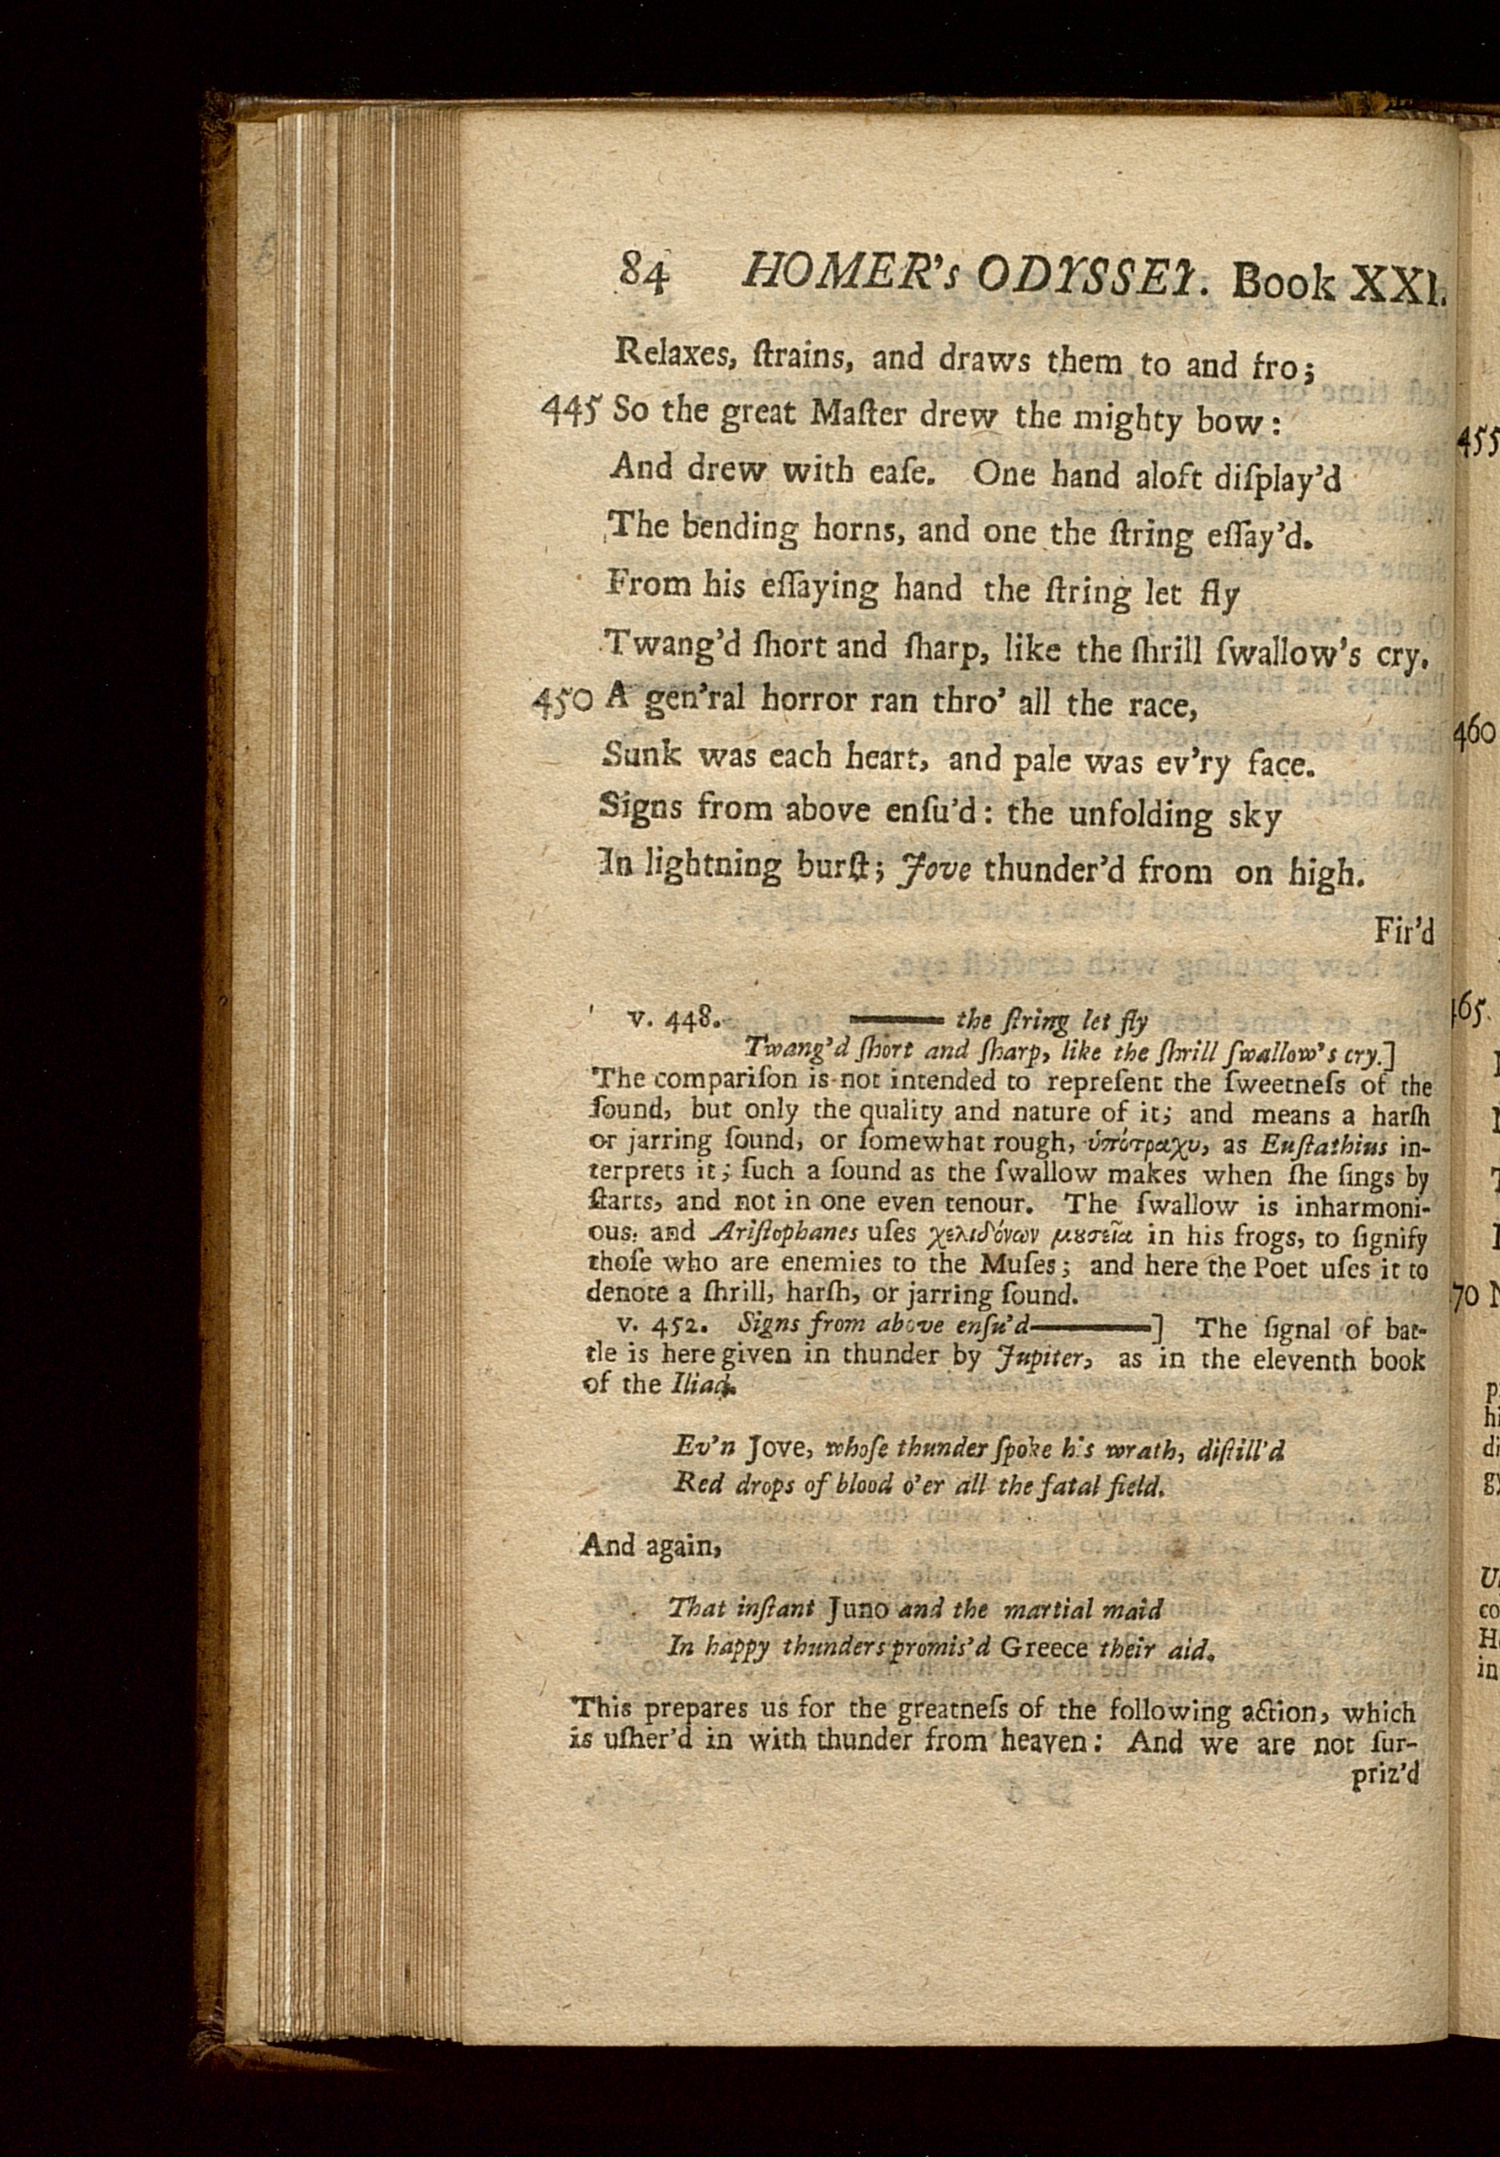 84 HOMER's ODYSSEY. Book XXI.
Relaxes, ſtrains, and draws them to and fro;
445 So the great Maſter drew the mighty bow:
And drew with eaſe. One hand aloft diſplay'd
The bending horns, and one the ſtring eſſay'd.
From his eſſaying hand the ſtring let fly
Twang'd ſhort and ſharp, like the ſhrill ſwallow's cry.
450 A gen'ral horror ran thro' all the race,
Sunk was each heart, and pale was ev'ry face.
Signs from above enſu'd: the unfolding sky
In lightning burſt; Jove thunder'd from on high.
Fir'd
v. 448. —— the ſtring let fly
Twang'd ſhort and ſharp, like the ſhrill ſwallow's cry.]
The compariſon is not intended to repreſent the ſweetneſs of the
ſound, but only the quality and nature of it; and means a harſh
or jarring ſound, or ſomewhat rough, ὑπότραχυ, as Euſtathius in-
terprets it; ſuch a ſound as the ſwallow makes when ſhe ſings by
ſtarts, and not in one even tenour. The ſwallow is inharmoni-
ous: and Ariſtophanes uſes χελιδόνων μȣσεῖα in his frogs, to ſignify
thoſe who are enemies to the Muſes; and here the Poet uſes it to
denote a ſhrill, harſh, or jarring ſound.
v. 452. Signs from above enſu'd——] The ſignal of bat-
tle is here given in thunder by Jupiter, as in the eleventh book
of the Iliad.
Ev'n Jove, whoſe thunder ſpoke his wrath, diſtill'd
Red drops of blood o'er all the fatal field.
And again,
That inſtant Juno and the martial maid
In happy thunders promis'd Greece their aid.
This prepares us for the greatneſs of the following action, which
is uſher'd in with thunder from heaven: And we are not ſur-
priz'd
455
460
465
70